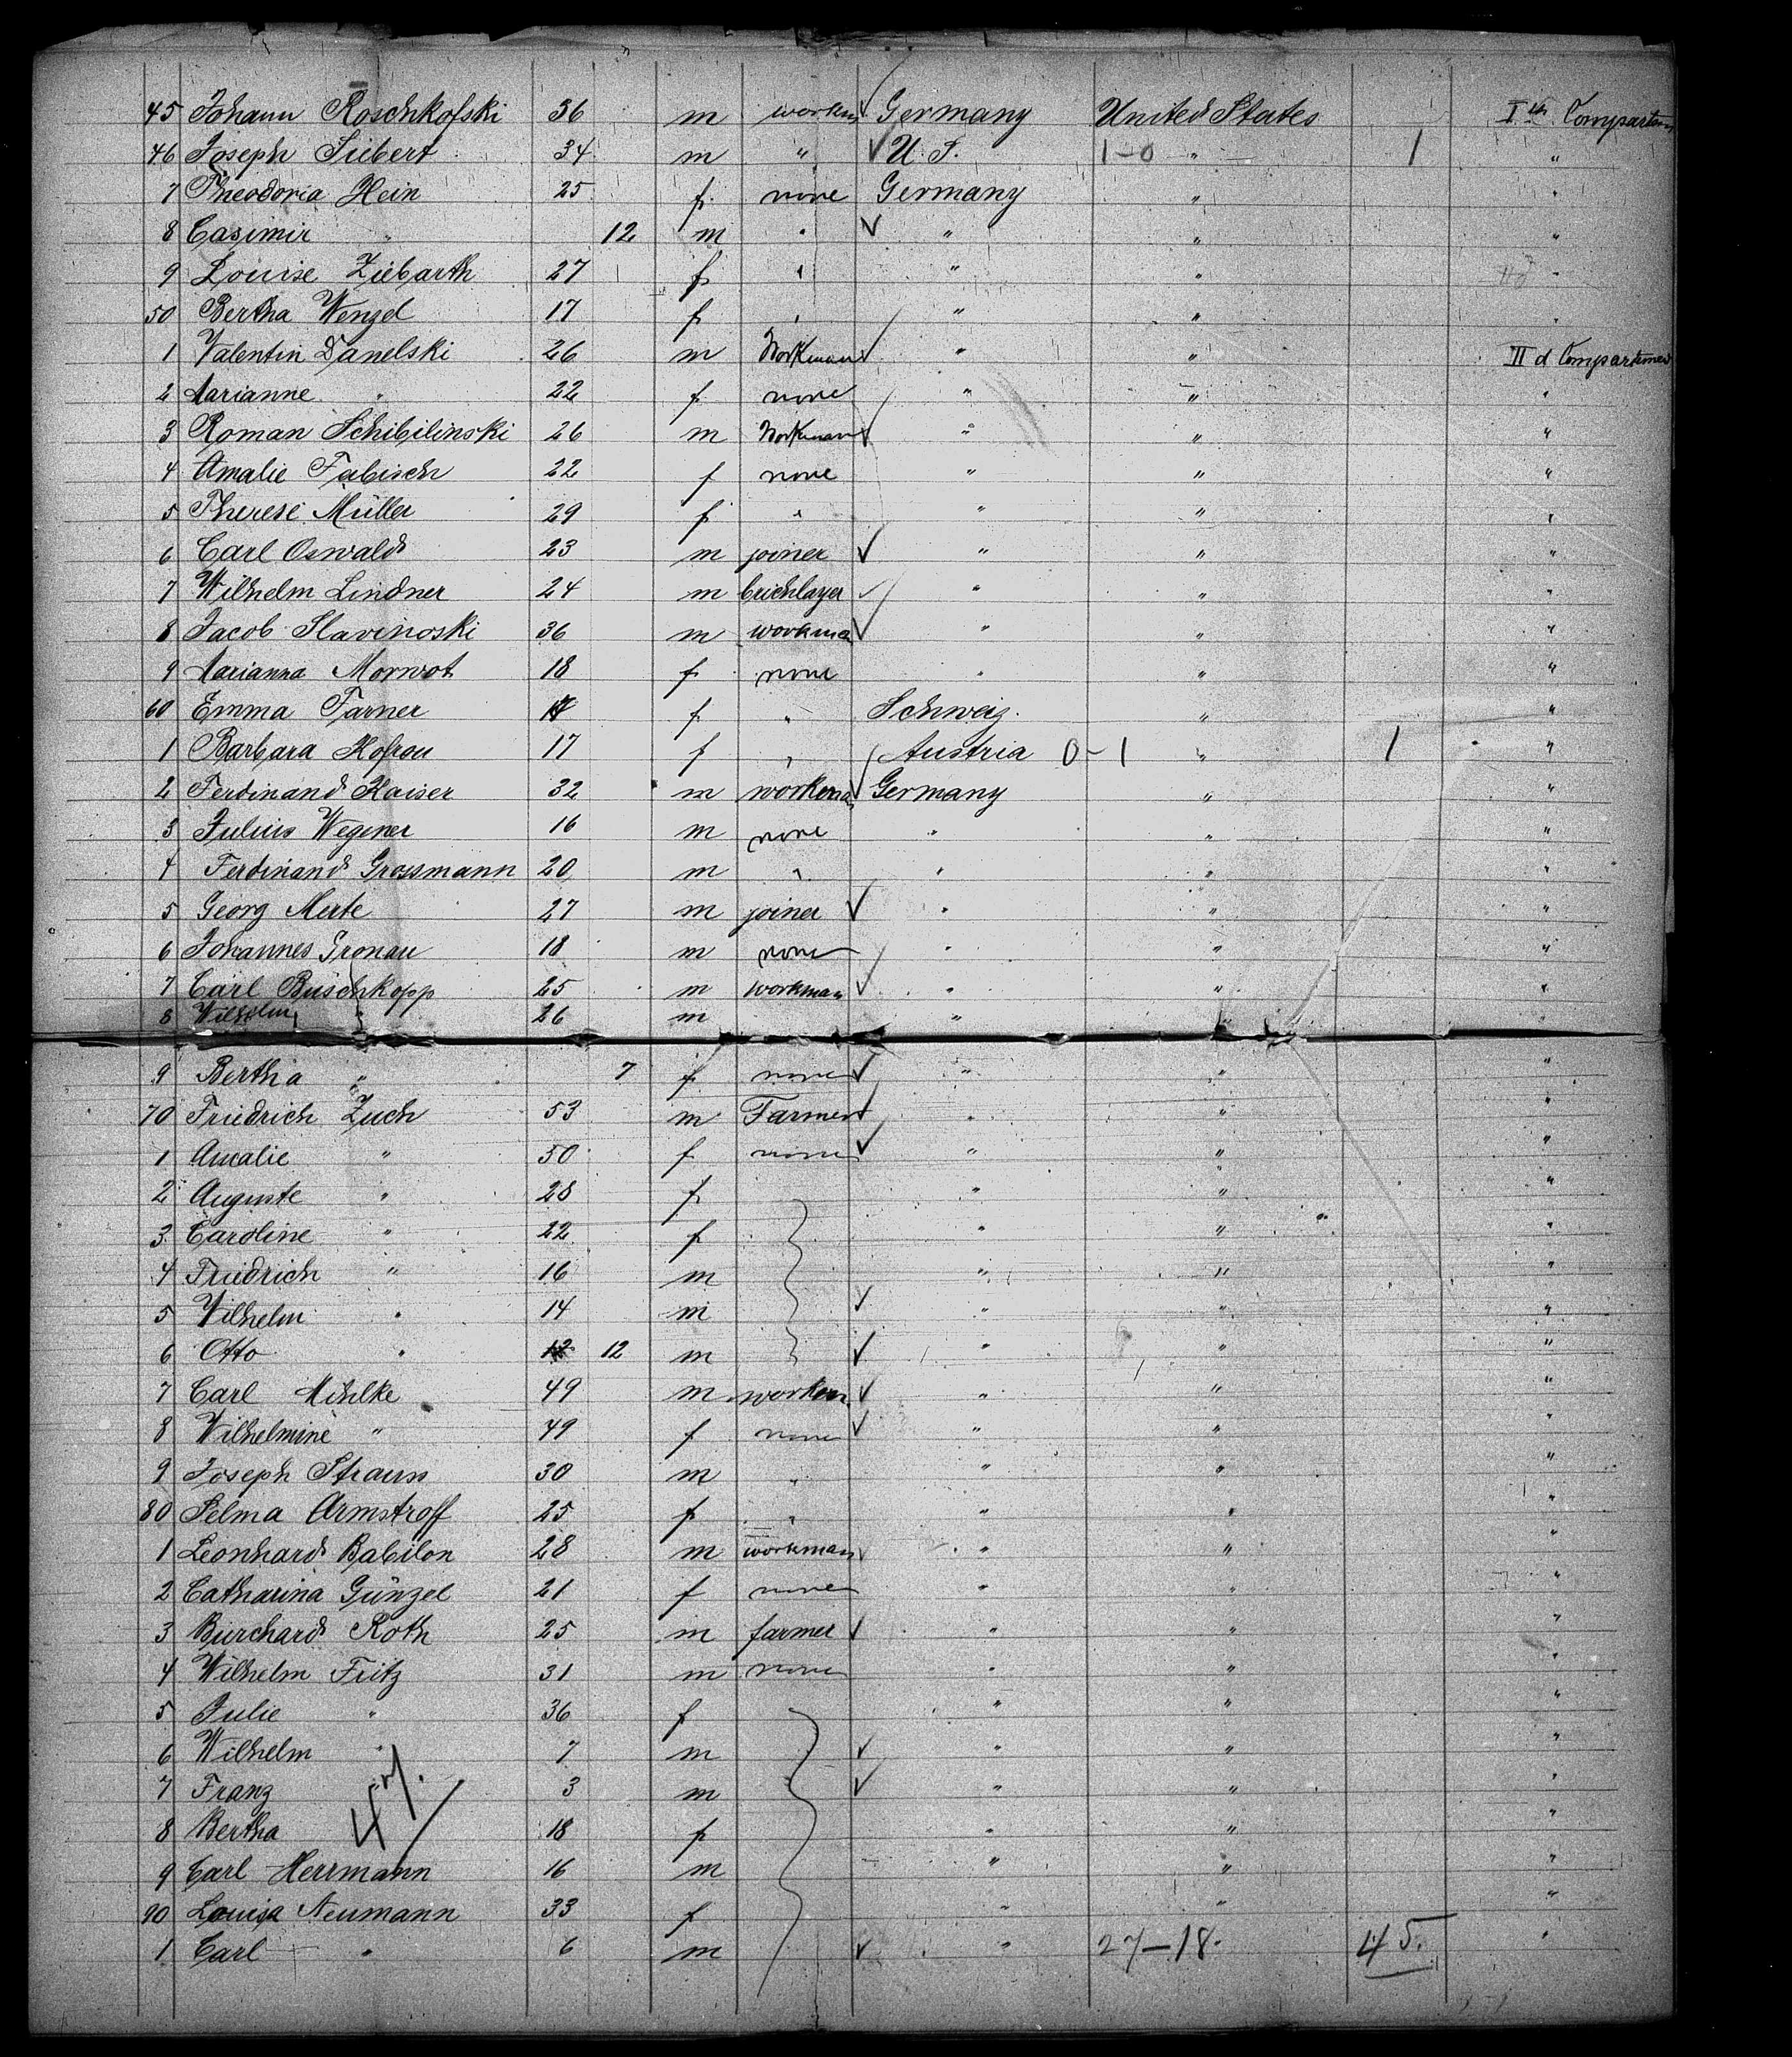 45 Johann Roschkofski 36 m workm Germany United States Ith Compartem
46 Joseph Siebert 34 m " U. S. 1-0 " 1 "
7 Theodoria Hein 25 f. none Germany " "
8 Casimir " 12 m " " " "
9 Louise Ziebarth 27 f " " " "
50 Bertha Wenzel 17 f " " " "
1 Valentin Danelski 26 m Workman " " II d Compartimen
2 Marianne " 22 f none " " "
3 Roman Schibilinski 26 m Workman " " "
4 Amalie Fabisch 22 f none " " "
5 Therese Müller 29 f " " " "
6 Carl Oswald 23 m joiner " " "
7 Wilhelm Lindner 24 m bricklayer " " "
8 Jacob Slavinoski 36 m workman " " "
9 Marianna Morwot 18 f none " " "
60 Emma Farner f " Schweiz. " "
1 Barbara Hofrou 17 f " Austria 0-1 " 1 "
2 Ferdinand Kaiser 32 m workman Germany " "
3 Julius Wegener 16 m none " " "
4 Ferdinand Grossmann 20 m " " " "
5 Georg Merte 27 m joiner " " "
6 Johannes Gronau 18 m none " " "
7 Carl Buschkopp 25 m workman " " "
8 Wilhelm " 26 m " " "
9 Bertha " 7 f none " " "
70 Friedrich Zuch 53 m Farmer " " "
1 Amalie " 50 f none " " "
2 Auguste " 28 f " " "
3 Caroline " 22 f " " "
4 Friedrich " 16 m " " "
5 Wilhelm " 14 m " " "
6 Otto " 12 m " " "
7 Carl Mihlke 49 m workm " " "
8 Wilhelmine " 49 f none " " "
9 Joseph Strauss 30 m " " " "
80 Selma Armstroff 25 f " " " "
1 Leonhard Babilon 28 m workman " " "
2 Catharina Günzel 21 f none " " "
3 Burchard Roth 25 m farmer " " "
4 Wilhelm Fritz 31 m none " " "
5 Julie " 36 f " " "
6 Wilhelm " 7 m " " "
7 Franz " 3 m " " "
8 Bertha 18 f " " "
9 Carl Herrmann 16 m " " "
90 Louisa Neumann 33 f " " "
1 Carl " 6 m " 27-18. 45. "